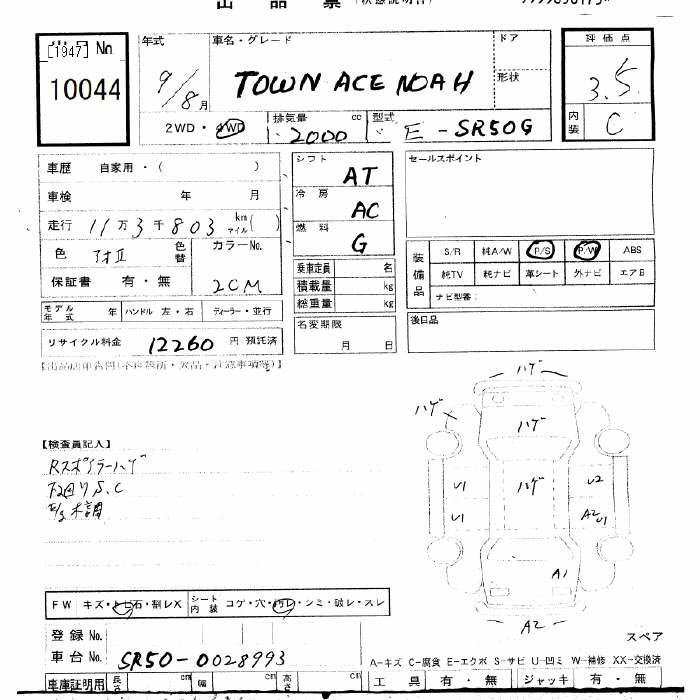 出品票
[1947] No
10044
年式 車名・グレード ドア
9/8月 TOWN ACE NOAH 形状
2WD・4WD 排気量 cc 2000 型式 E-SR50G
評価点 3.5
内装 C
車歴 自家用・( )
車検 年 月
走行 11万3千803 km マイル( )
色 色替 カラーNo.
保証書 有・無 2CM
モデル年式 年 ハンドル 左・右 ディーラー・並行
リサイクル料金 12260 円 預託済
シフト AT
冷房 AC
燃料 G
乗車定員 名
積載量 kg
総重量 kg
名変期限 月 日
セールスポイント
装備品 S/R 純A/W P/S P/W ABS
純TV 純ナビ 革シート 外ナビ エアB
ナビ型番:
後日品
【検査員記入】
Rスポイラーハゲ
下回りS.C
ハゲ
ハゲ ハゲ
U1 ハゲ U2
U1 A2 U1
A1
A2
FW キズ・トビ石・割レX シート内装 コゲ・穴・汚レ・シミ・破レ・スレ
登録No.
車台No. SR50-0028993
車庫証明用 長さ cm 幅 cm 高さ cm
スペア
A-キズ C-腐食 E-エクボ S-サビ U-凹ミ W-補修 XX-交換済
工具 有・無 ジャッキ 有・無